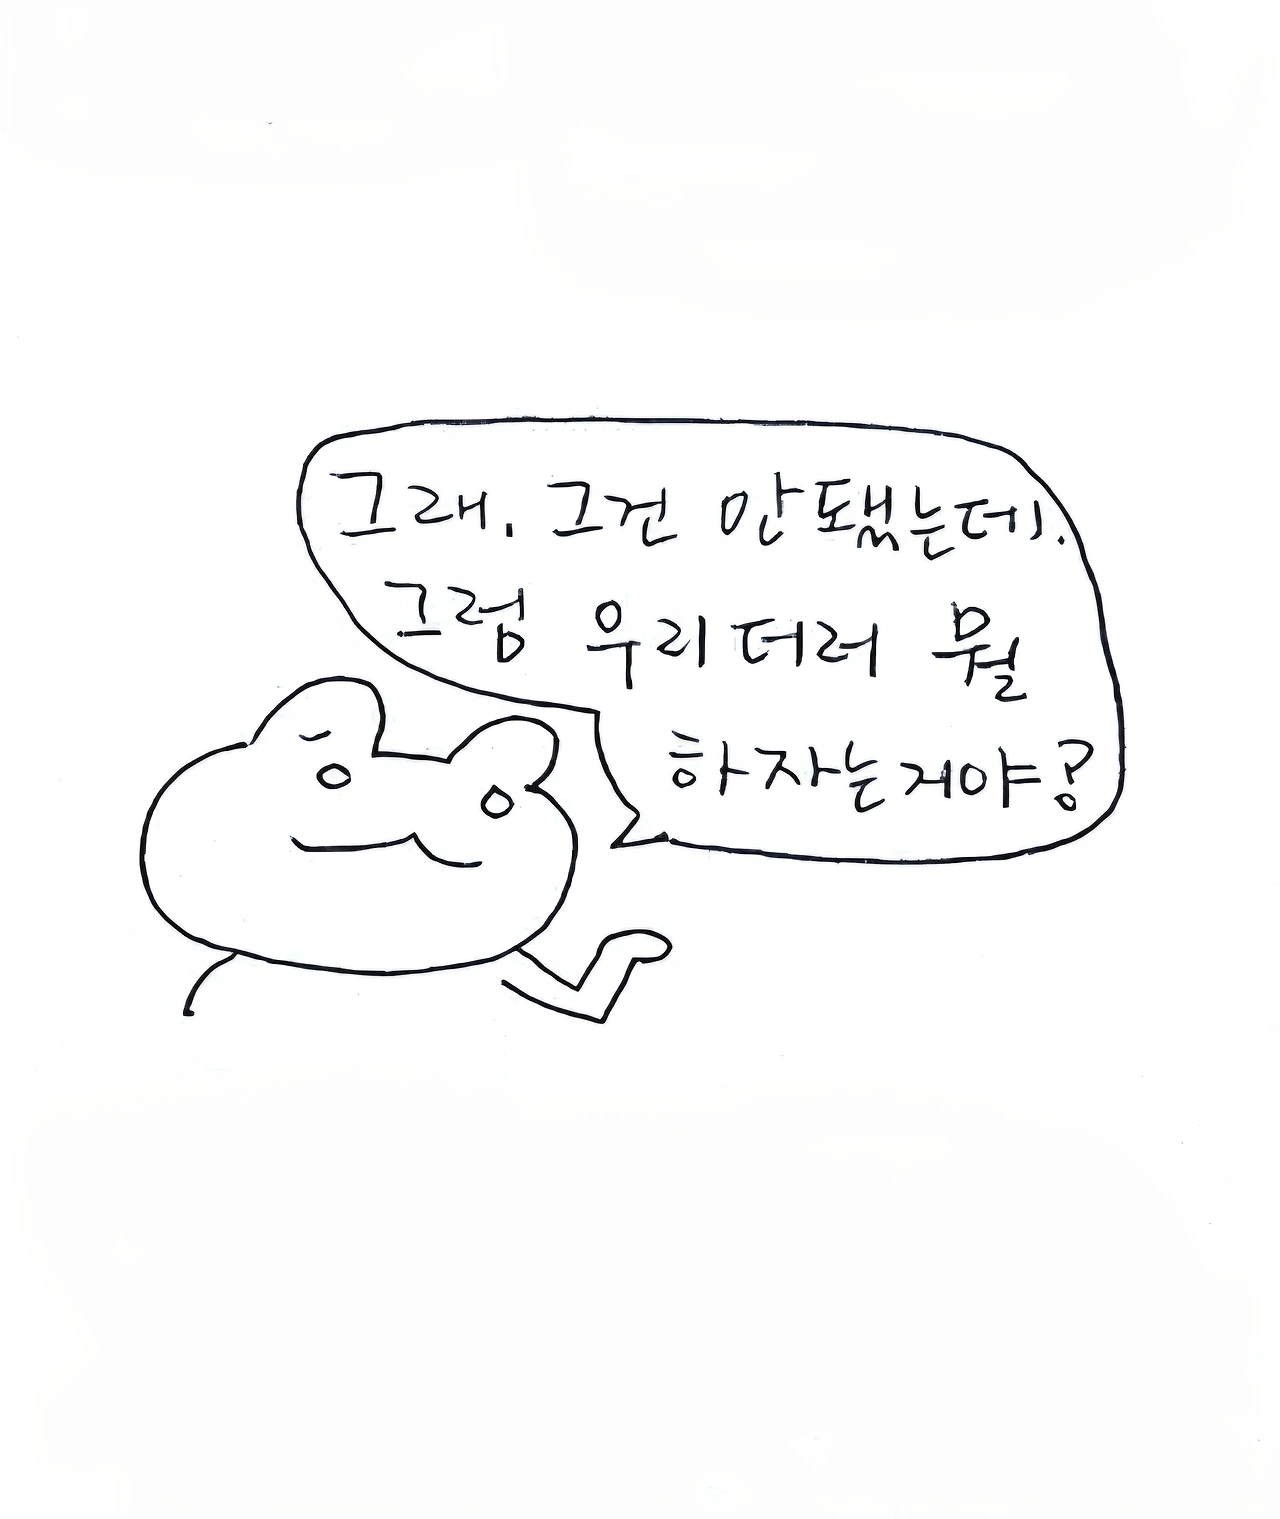 그래. 그건 안됐는데.
그럼 우리더러 뭘
하자는거야?